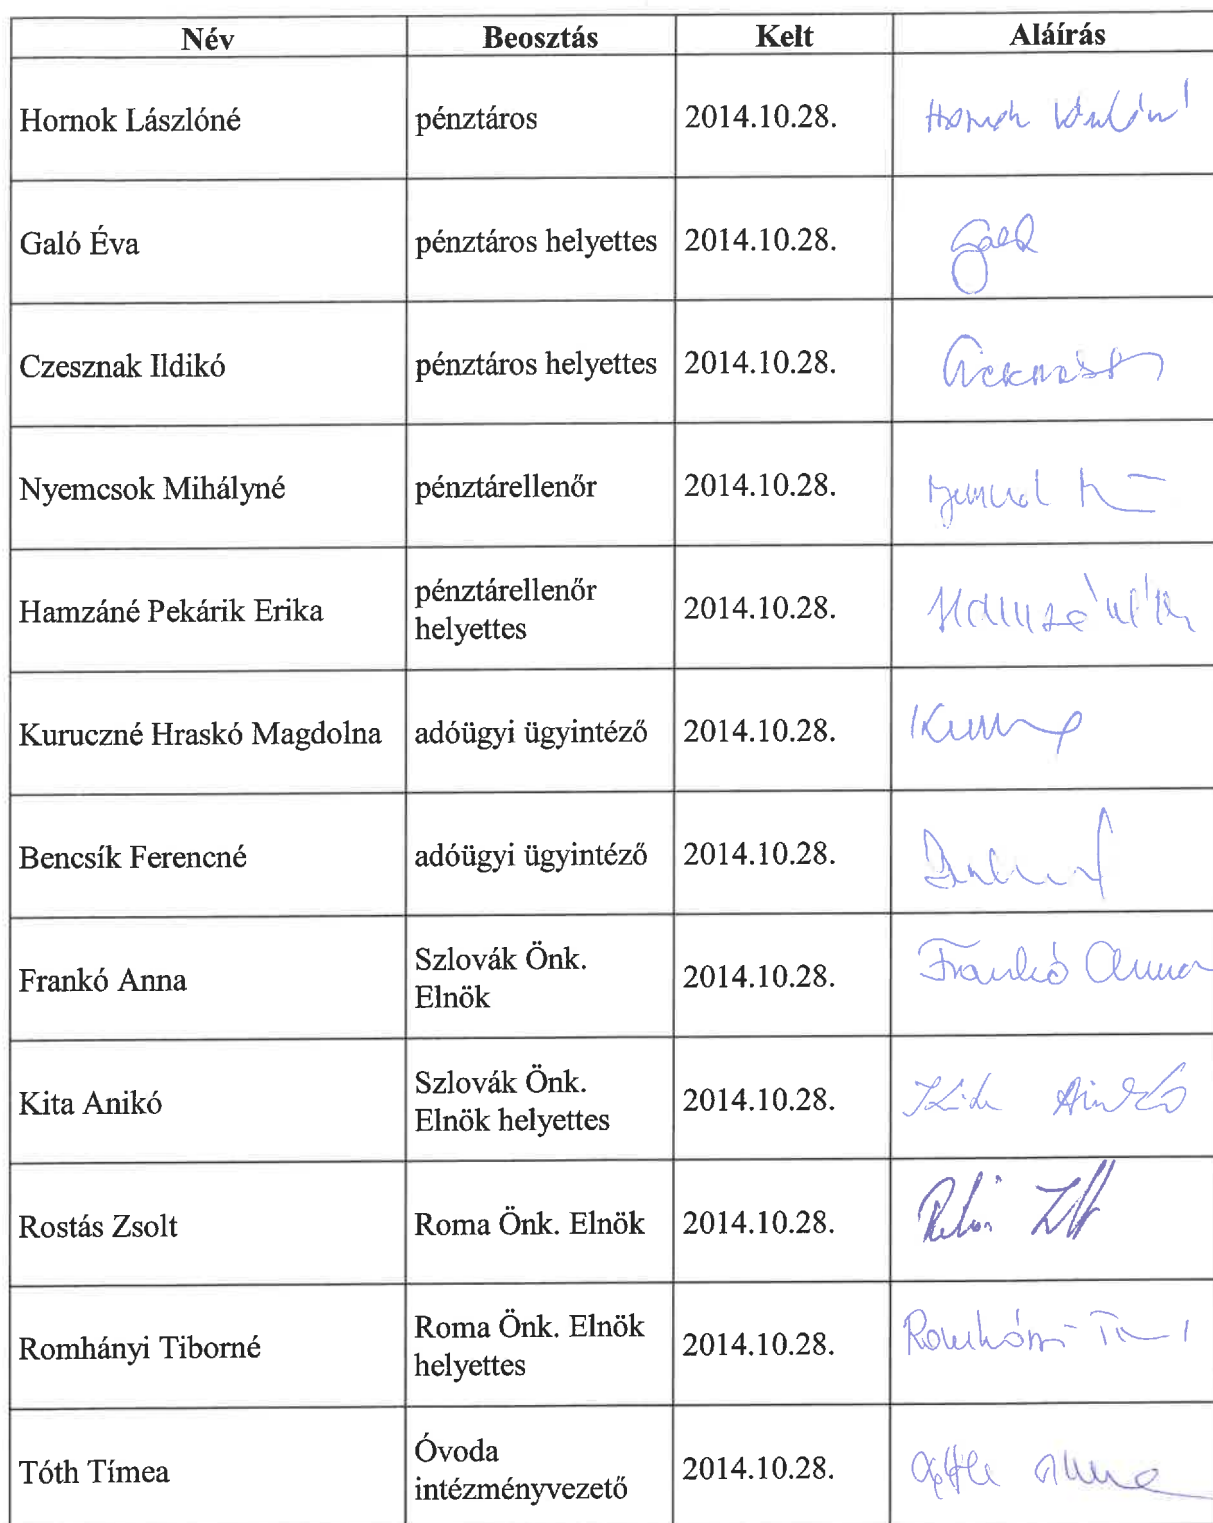 Név Beosztás Kelt Aláírás
Hornok Lászlóné pénztáros 2014.10.28.
Galó Éva pénztáros helyettes 2014.10.28.
Czesznak Ildikó pénztáros helyettes 2014.10.28.
Nyemcsok Mihályné pénztárellenőr 2014.10.28.
Hamzáné Pekárik Erika pénztárellenőr
helyettes 2014.10.28.
Kuruczné Hraskó Magdolna adóügyi ügyintéző 2014.10.28.
Bencsík Ferencné adóügyi ügyintéző 2014.10.28.
Frankó Anna Szlovák Önk.
Elnök 2014.10.28. Frankó Anna
Kita Anikó Szlovák Önk.
Elnök helyettes 2014.10.28. Kita Anikó
Rostás Zsolt Roma Önk. Elnök 2014.10.28.
Romhányi Tiborné Roma Önk. Elnök
helyettes 2014.10.28.
Tóth Tímea Óvoda
intézményvezető 2014.10.28.